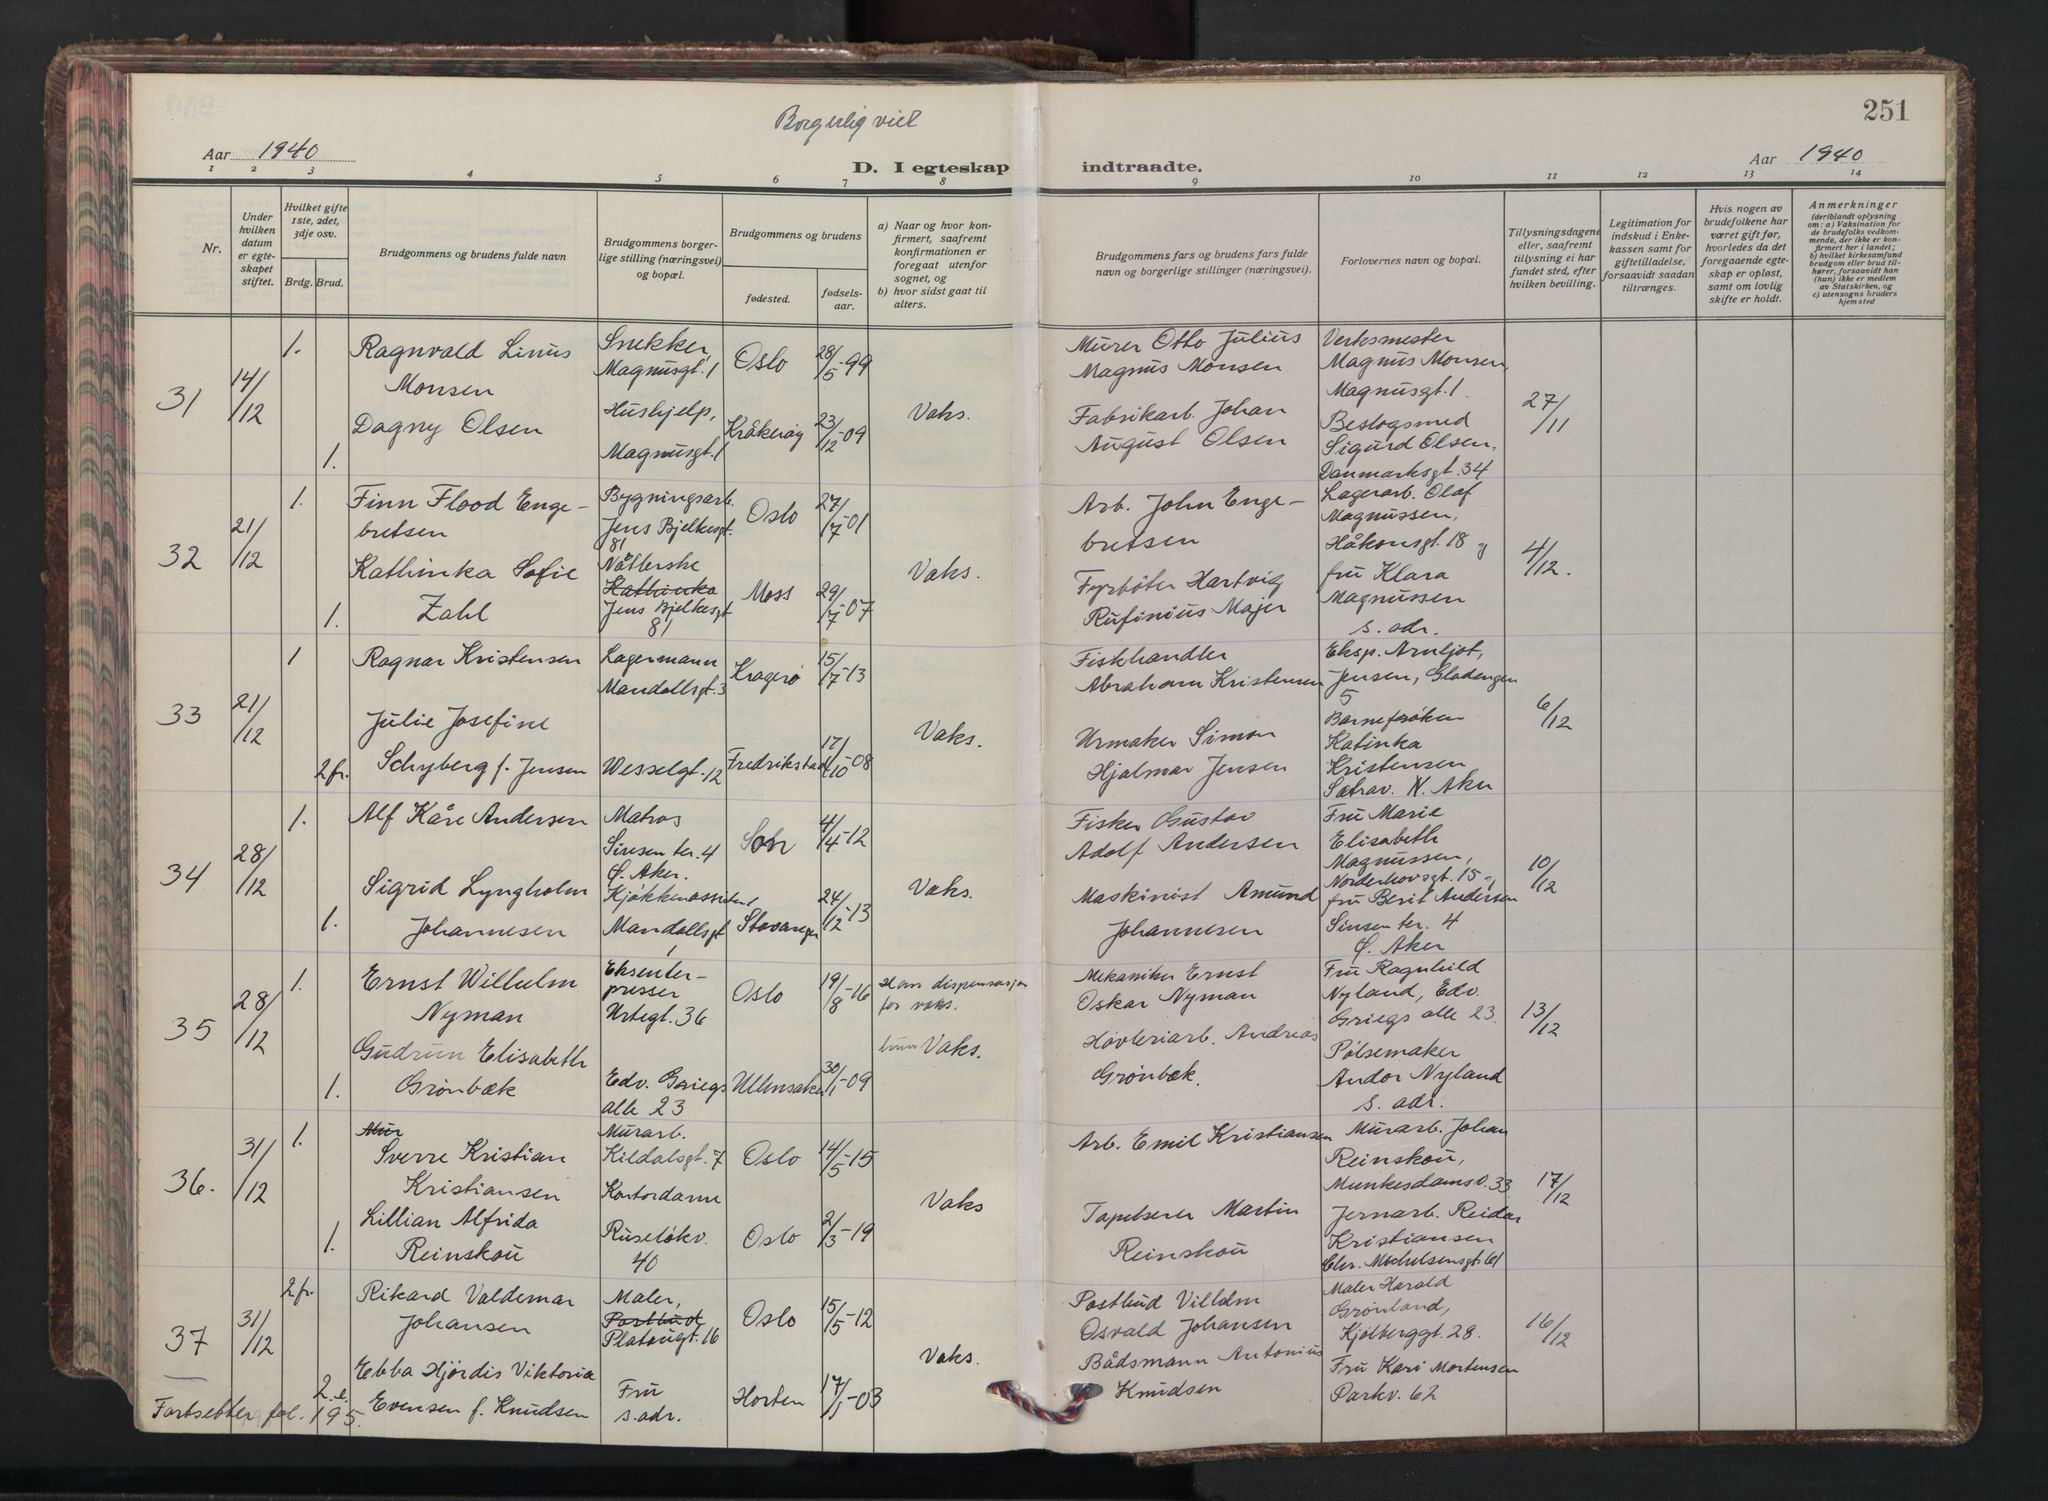 251
Borgerlig viet
Aar 1940
D. I egteskap indtraadte.
Aar 1940
1 2 3 4 5 6 7 8 9 10 11 12 13 14
Nr.
Under hvilken datum er egte-skapet stiftet.
Hvilket gifte 1ste, 2det, 3dje osv.
Brdg. Brud.
Brudgommens og brudens fulde navn
Brudgommens borger-lige stilling (næringsvei) og bopæl.
Brudgommens og brudens
fødested.
fødsels-aar.
a) Naar og hvor kon-firmert, saafremt konfirmationen er foregaat utenfor sognet, og
b) hvor sidst gaat til alters.
Brudgommens fars og brudens fars fulde navn og borgerlige stillinger (næringsvei).
Forlovernes navn og bopæl.
Tillysningsdagene eller, saafremt tillysning ei har fundet sted, efter hvilken bevilling.
Legitimation for indskud i Enke-kassen samt for giftetilladelse, forsaavidt saadan tiltrænges.
Hvis nogen av brudefolkene har været gift før, hvorledes da det foregaaende egte-skap er opløst, samt om lovlig skifte er holdt.
Anmerkninger
(deriblandt oplysning om: a) Vaksination for de brudefolks vedkom-mende, der ikke er kon-firmert her i landet; b) hvilket kirkesamfund brudgom eller brud til-hører, forsaavidt han (hun) ikke er medlem av Statskirken, og c) utensogns bruders hjemsted
31
14/12
1.
Ragnvald Linus
Monsen
Snekker,
Magnusgt. 1
Oslo
28/5-99
Murer Otto Julius
Magnus Monsen
Verksmester
Magnus Monsen,
Magnusgt. 1.
1.
Dagny Olsen
Hushjelp,
Magnusgt. 1
Kråkerøy
23/12-09
Vaks.
Fabrikarb. Johan
August Olsen
Beslagsmed
Sigurd Olsen,
Danmarksgt. 34
27/11
32
21/12
1.
Finn Flood Enge-
bretsen
Bygningsarb.
Jens Bjelkesgt.
81
Oslo
27/7-01
Arb. John Enge-
bretsen
Lagerarb. Olaf
Magnussen,
Håkonsgt. 18 og
1.
Kathinka Sofie
Zahl
Nåtlerske
Kathinka
Jens Bjelkesgt
81
Moss
29/7-07
Vaks.
Fyrbøter Hartvig
Rufinius Majer
fru Klara
Magnussen
s. adr.
4/12.
33
21/12
1
Ragnar Kristensen
Lagermann
Mandallsgt. 3
Kragerø
15/7-13
Fiskhandler
Abraham Kristensen
Eksp. Arnljot,
Jensen, Gladengen
5
2 fr.
Julie Josefine
Schyberg f. Jensen
Wesselgt. 12
Fredrikstad
17/10-08
Vaks.
Urmaker Simon
Hjalmar Jensen
Barnefrøken
Katinka
Kristensen
Sætrav. N. Aker
6/12
34
28/12
1.
Alf Kåre Andersen
Matros
Sinsen ter. 4
Ø. Aker.
Son
4/4-12
Fisker Gustav
Adolf Andersen
Fru Marie
Elisabeth
Magnussen,
Norderhovsgt. 15 -,
1.
Sigrid Lyngholm
Johannesen
Kjøkkenassistent
Mandallsgt
1
Stavanger
24/12-13
Vaks.
Maskinist Amund
Johannesen
fru Berit Andersen
Sinsen ter. 4
Ø. Aker
10/12
35
28/12
1.
Ernst Wilhelm
Nyman
Eksenter-
presser
Urtegt. 36
Oslo
19/8-16
Ham dispensasjon
for vaks.
Mekaniker Ernst
Oskar Nyman
Fru Ragnhild
Nyland, Edv.
Griegs alle 23.
1.
Gudrun Elisabeth
Grønbæk
Edv. Griegs
alle 23
Ullensaker
30/1-09
Vaks.
Høvleriarb. Andreas
Grønbæk.
Pølsemaker
Andor Nyland
s. adr.
13/12
36.
31/12
1.
Mur
Sverre Kristian
Kristiansen
Murarb.
Kildalsgt. 7
Oslo
14/5-15
Arb. Emil Kristiansen
Murarb. Johan
Reinskou,
Munkedamsv. 33
1.
Lillian Alfrida
Reinskou
Kontordame
Ruseløkv.
40
Oslo
2/3-19
Vaks
Tapetserer Martin
Reinskou
Jernarb. Reidar
Kristiansen
Chr. Michelsensgt. 61
17/12
37
31/12
2 fr.
Rikard Valdemar
Johansen
Maler,
Postbud
Platougt. 16
Oslo
15/5-12
Postbud Villelm
Osvald Johansen
Maler Harald
Grønland,
Kjølberggt. 28.
2. e.
Ebba Hjördis Viktoria
Evensen f. Knudsen
Fru
s. adr.
Horten
17/1-03
Vaks.
Bådsmann Antonius
Knudsen
Fru Kari Mortensen
Parkv. 62
16/12
Fortsetter fol. 195.